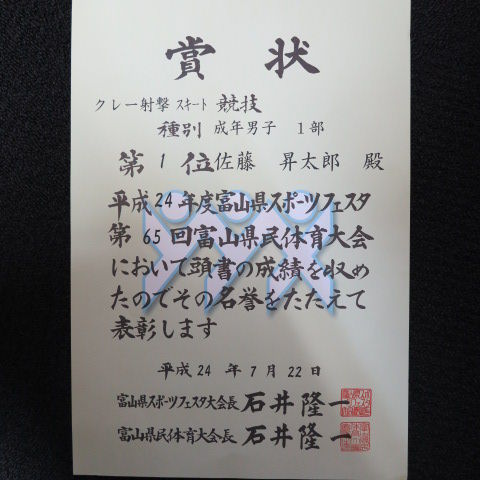 賞状
クレー射撃 スキート 競技
種別 成年男子 1部
第 1 位 佐藤 昇太郎 殿
平成24年度富山県スポーツフェスタ
第65回富山県民体育大会
において頭書の成績を収め
たのでその名誉をたたえて
表彰します
平成 24 年 7 月 22 日
富山県スポーツフェスタ大会長 石井隆一
富山県民体育大会長 石井隆一